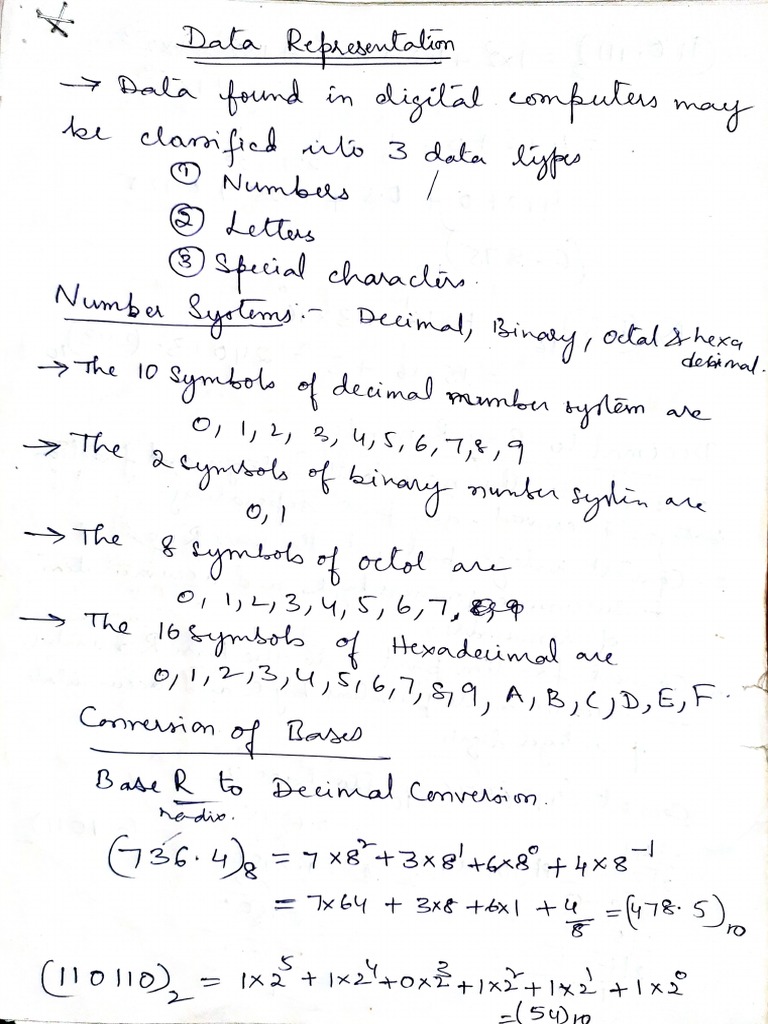 Data Representation
→ Data found in digital computers may
be classified into 3 data types
① Numbers /
② Letters
③ Special characters.
Number Systems :- Decimal, Binary, octal & hexa
decimal.
→ The 10 symbols of decimal number system are
0, 1, 2, 3, 4, 5, 6, 7, 8, 9
→ The 2 symbols of binary number system are
0, 1
→ The 8 symbols of octal are
0, 1, 2, 3, 4, 5, 6, 7, 8, 9
→ The 16 symbols of Hexadecimal are
0, 1, 2, 3, 4, 5, 6, 7, 8, 9, A, B, C, D, E, F.
Conversion of Bases
Base R to Decimal Conversion.
radix.
(736.4)₈ = 7×8² + 3×8¹ + 6×8⁰ + 4×8⁻¹
= 7×64 + 3×8 + 6×1 + 4/8 = (478.5)₁₀
(110110)₂ = 1×2⁵ + 1×2⁴ + 0×2³ + 1×2² + 1×2¹ + 1×2⁰
= (54)₁₀